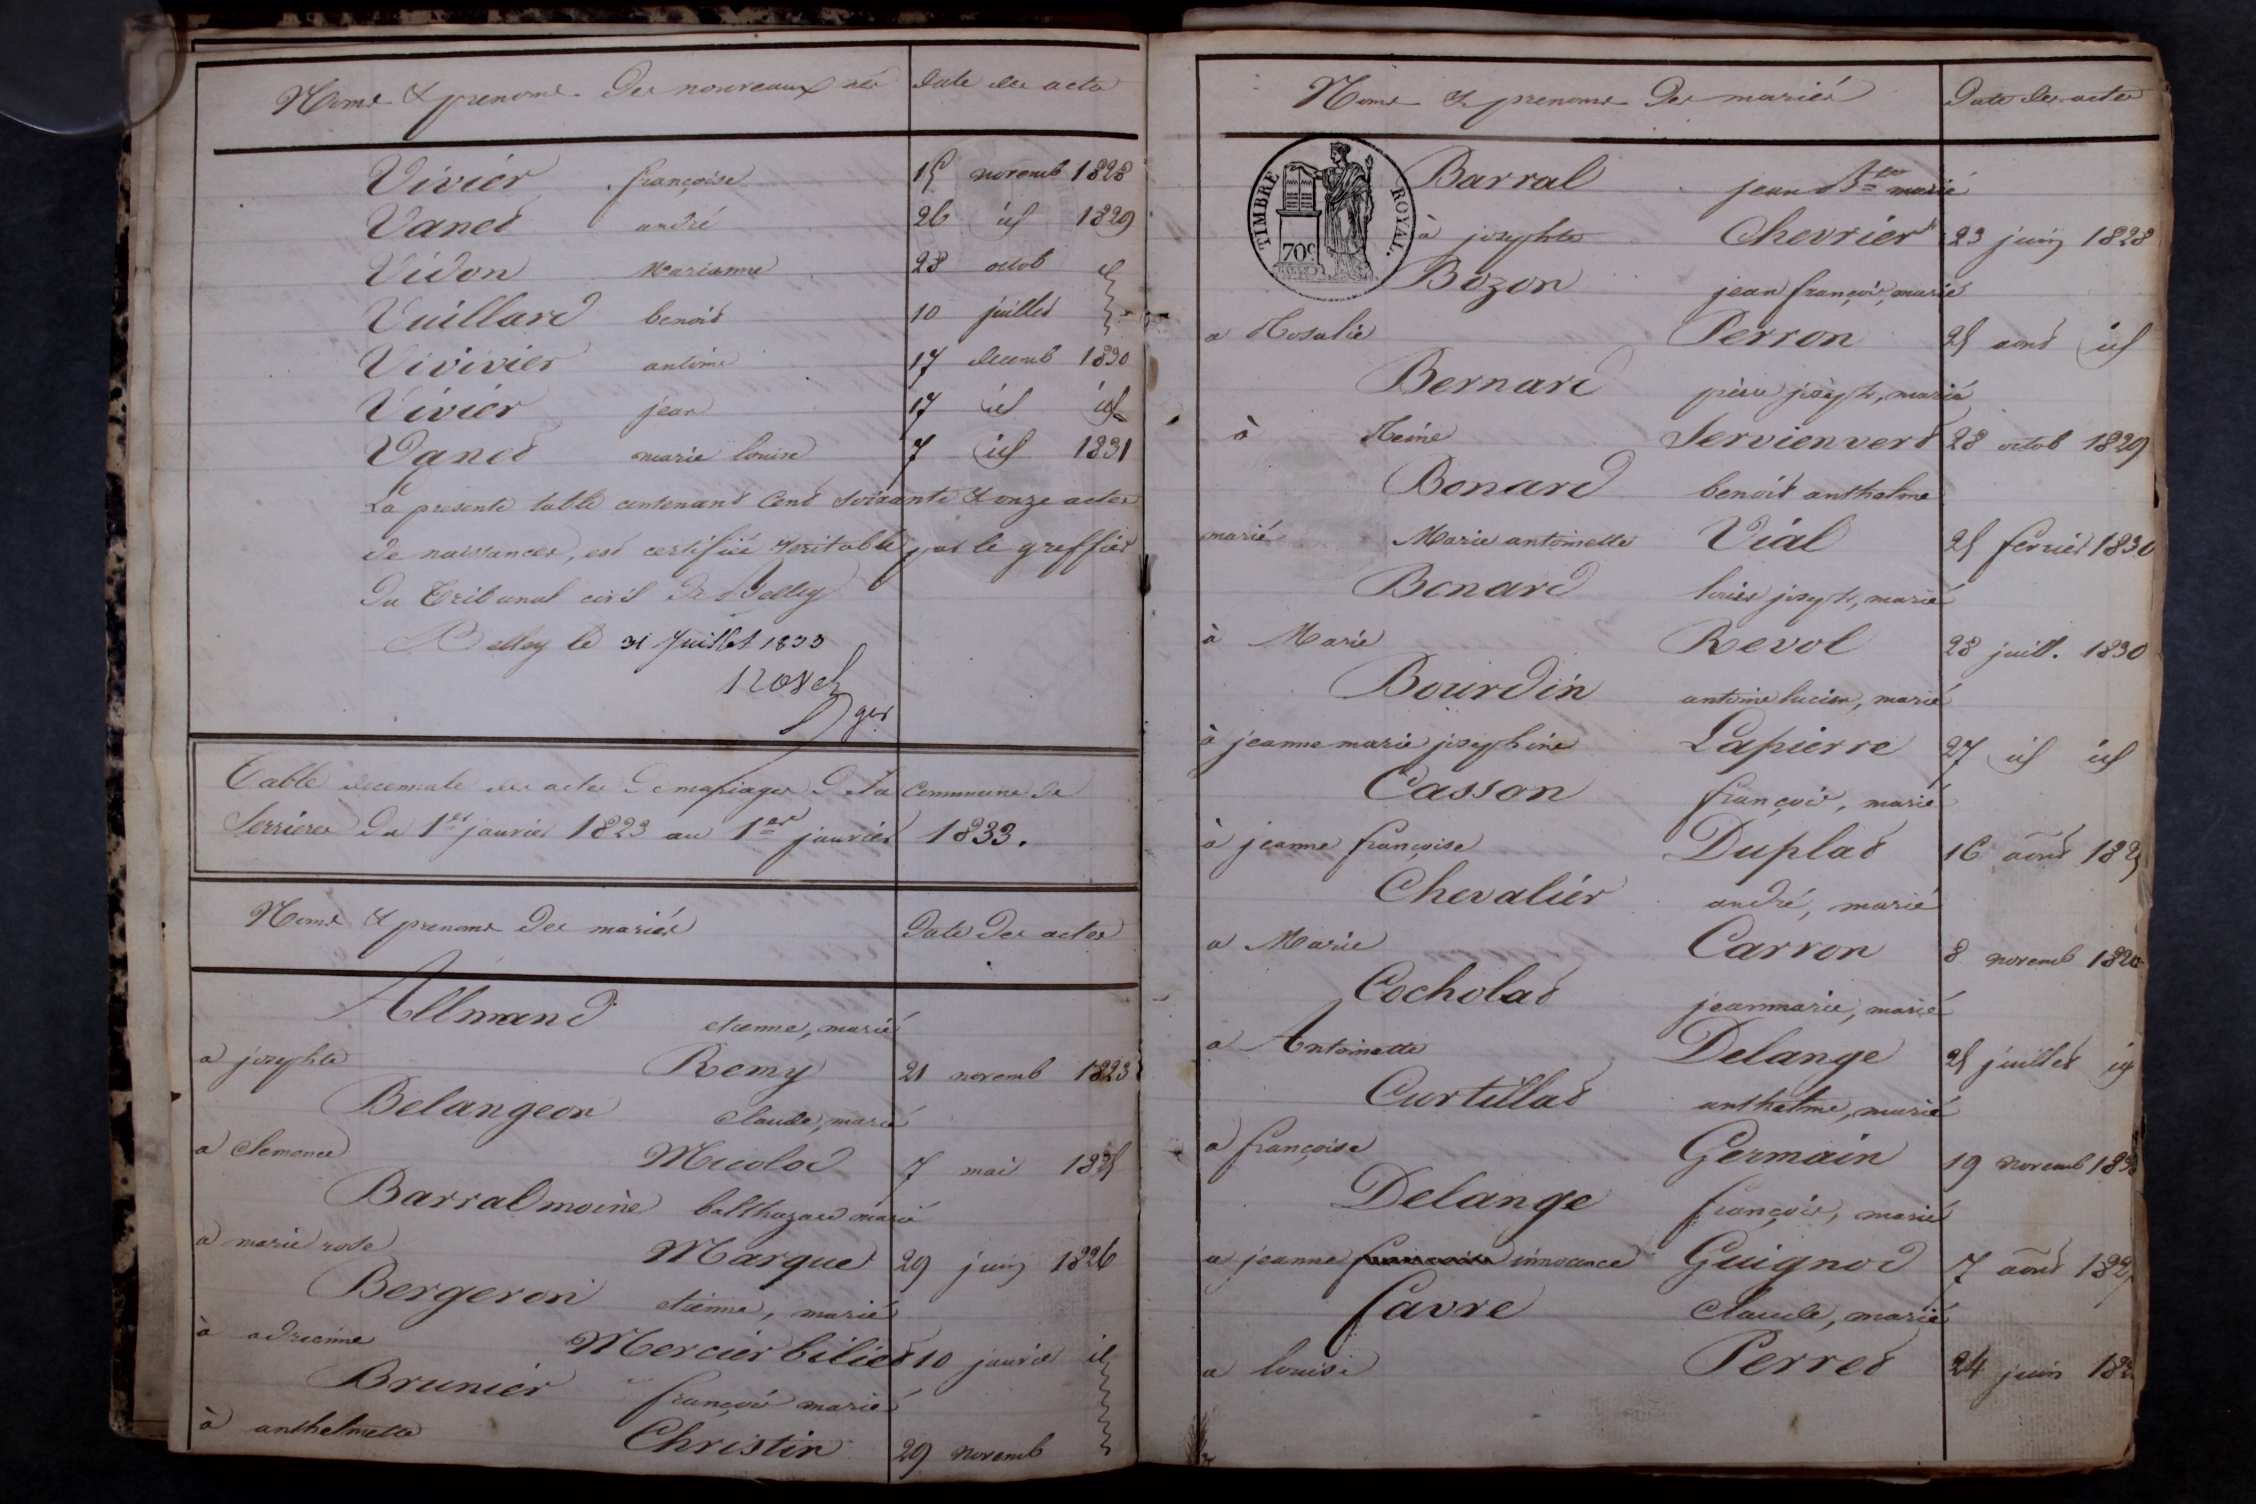 Noms & prenoms des nouveaux nés date des actes
Vivier françoise 15 novemb 1828
Vanet andré 26 id 1829
Vidon Marianne 28 octob
Vuillard benoit 10 juillet
Vivivier antoine 17 decemb 1830
Vivier jean 17 id id
Vanet marie louise 7 id 1831
La presente table contenant Cent Soixante & onze actes
de naissances, est certifiée veritable par le greffier
du Tribunal civil de Belley
Belley le 31 Juillet 1833
ger
Table decennale des actes de mariages de la Commune de
Serrieres du 1er janvier 1823 au 1er janvier 1833.
Noms & prenoms des mariés Date des actes
Allmand etienne, marié
a josephte Remy 21 novemb 1823
Belangeon Claude, marié
a Clemence Micolod 7 mai 1825
Barral moine balthazard marié
a marie rose Marque 29 juin 1826
Bergeron etienne, marié
à adrienne Mercier biliet 10 janvier id
Brunier françois marié
à anthelmette Christin 29 novemb
Noms & prenoms des mariés Date des actes
TIMBRE ROYAL.
70c
Barral jean Bte marié
à josephte Chevrier 23 juin 1828
Bozon jean françois, marié
a Rosalie Perron 25 aout id
Bernard pierre joseph, marié
à Reine Servienvert 28 octob 1829
Bonard benoit anthelme
marié Marie antoinette Vial 25 fevrier 1830
Bonard louis joseph, marié
à Marie Revol 28 juill. 1830
Bourdin antoine lucien, marié
à jeanne marie josephine Lapierre 27 id id
Casson françois, marié
à jeanne françoise Duplat 16 aout 1825
Chevalier andré, marié
a Marie Carron 8 novemb
Cocholat jeanmarie, marié
a Antoinette Delange 25 juillet id
Curtillat anthelme, marié
a françoise Germain 19 novemb
Delange françois, marié
a jeanne innocence Guignod 7 aout 1827
favre Claude, marié
a louise Perret 24 juin